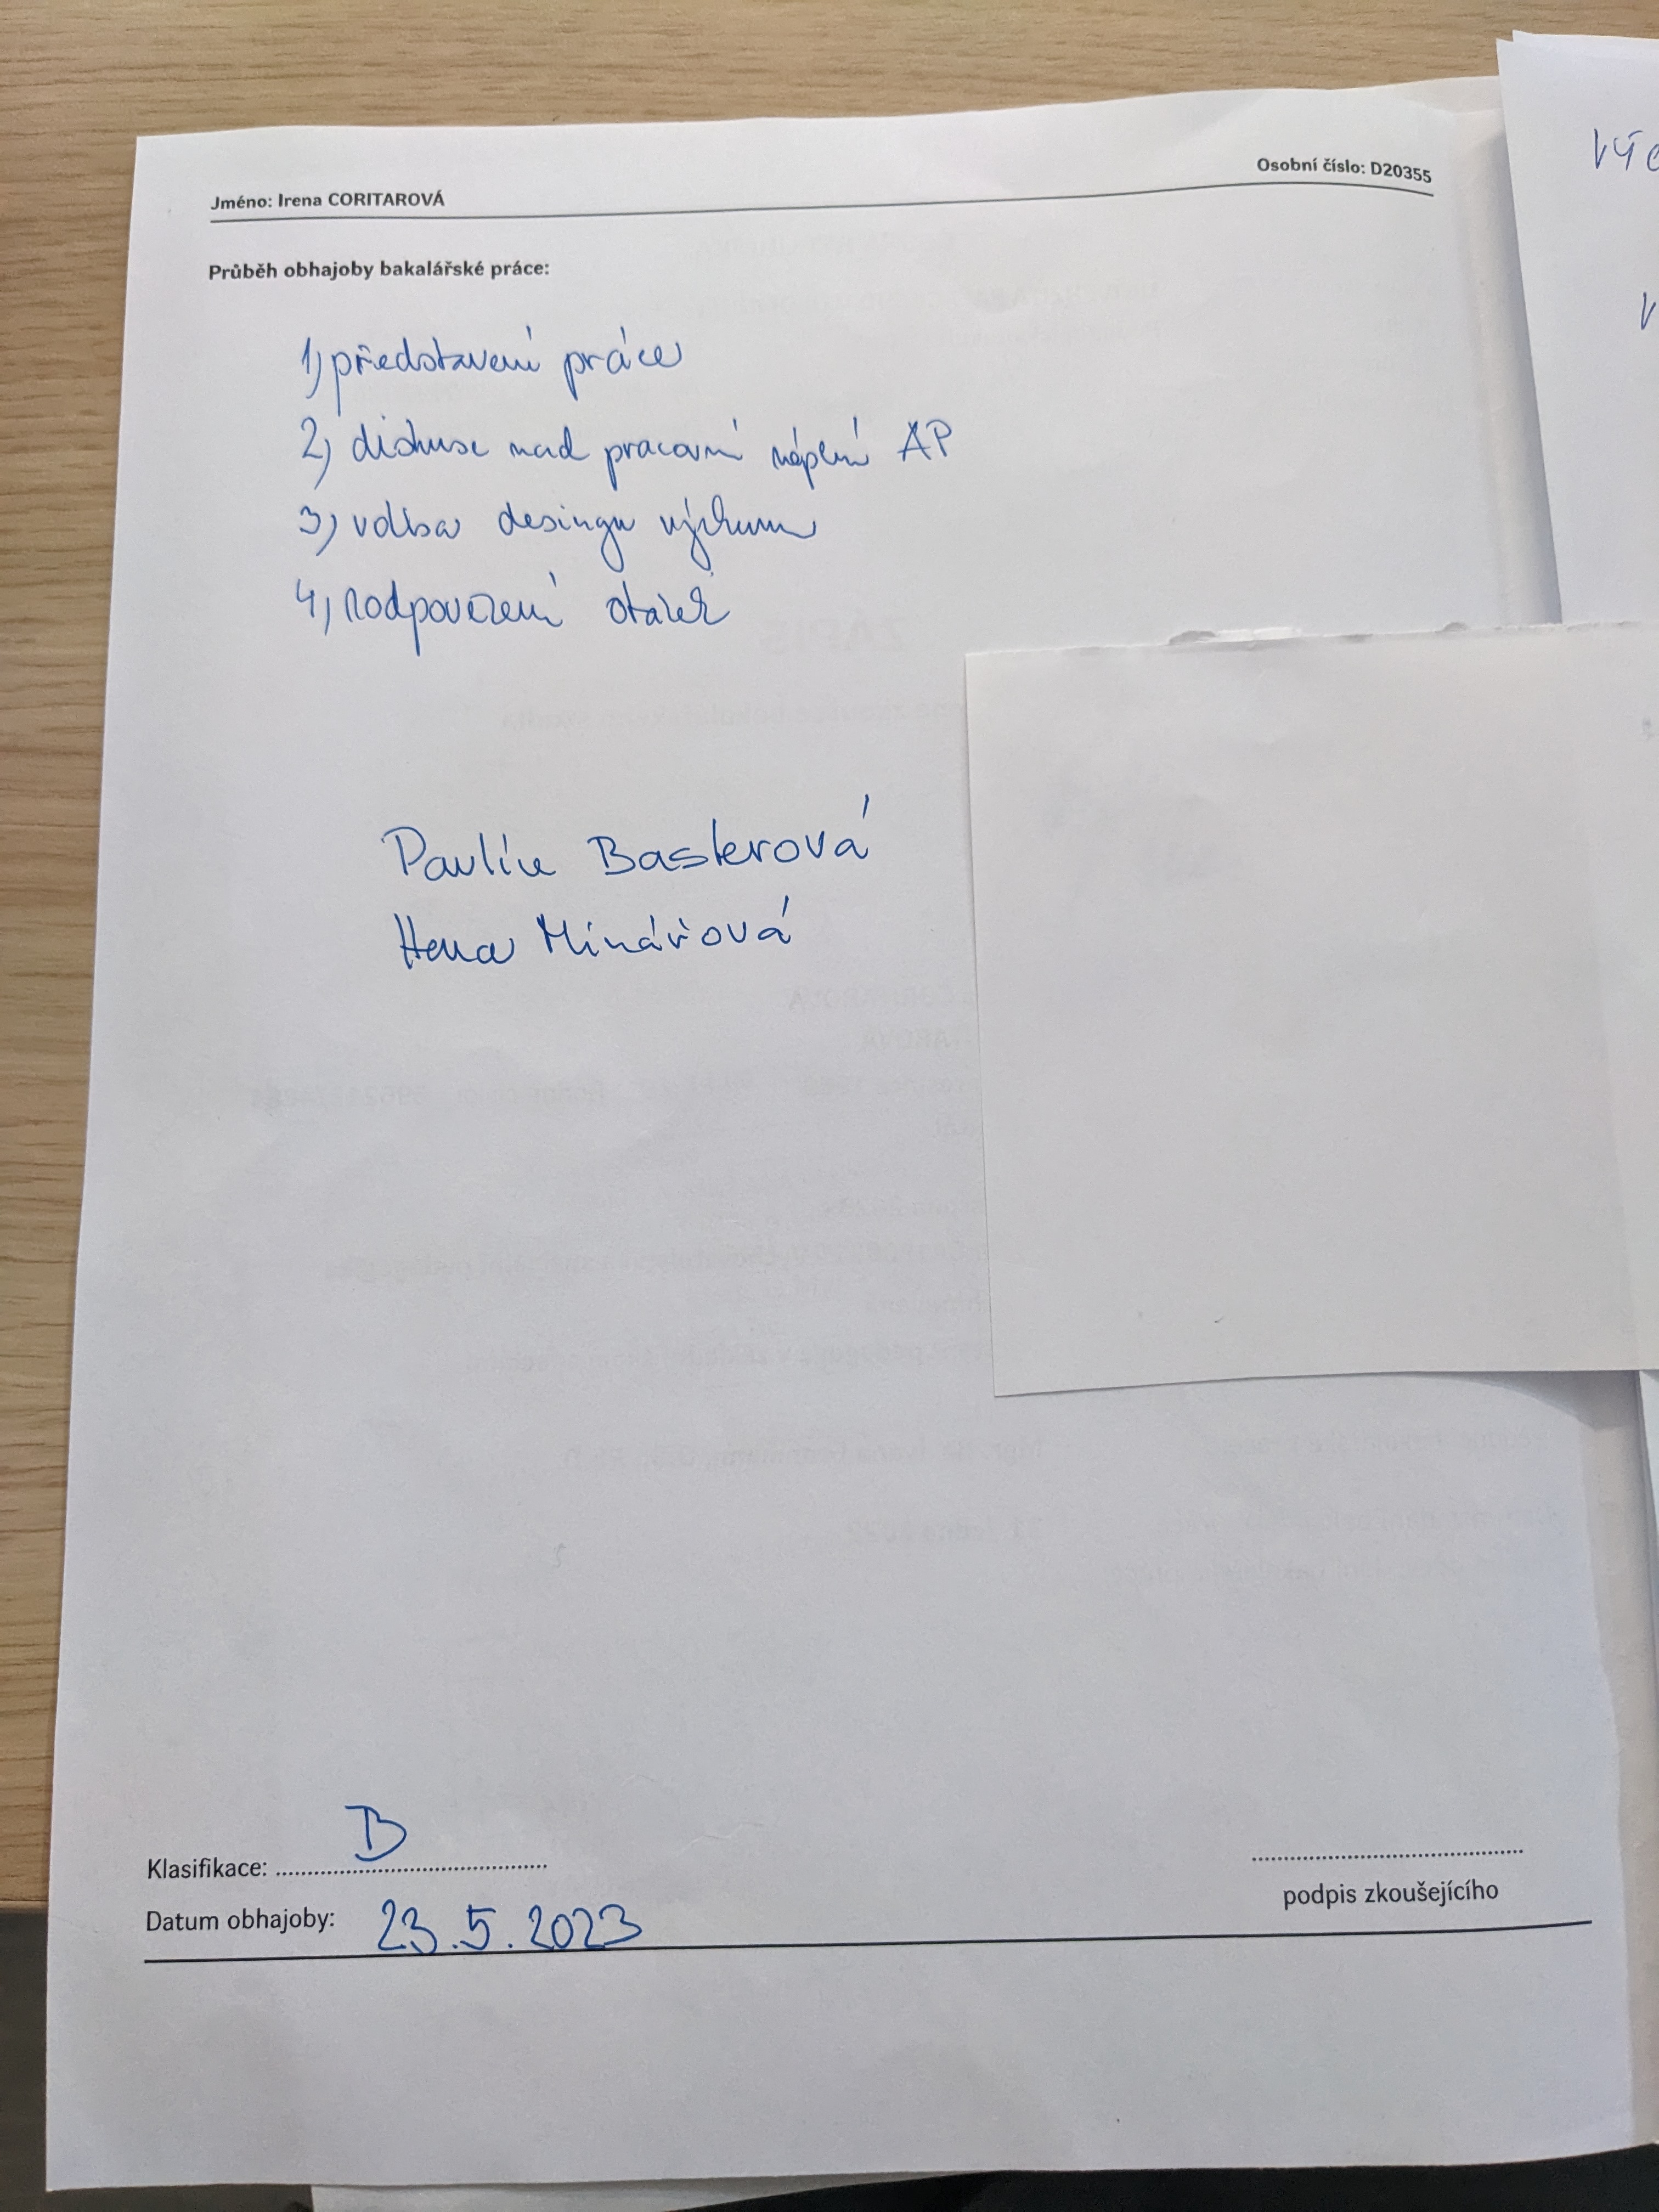 Jméno: Irena CORITAROVÁ
Osobní číslo: D20355
Průběh obhajoby bakalářské práce:
1) představení práce
2) diskuse nad pracovní náplní AP
3) volba desingu výzkumu
4) zodpovězení otázek
Pavlína Baslerová
Hana Minářová
Klasifikace: B
Datum obhajoby: 23.5.2023
podpis zkoušejícího